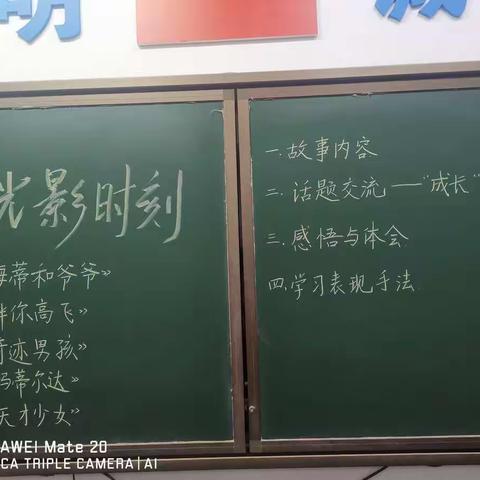 明
光影时刻
海蒂和爷爷》
伴你高飞》
奇迹男孩》
玛蒂尔达》
天才少女》
一.故事内容
二.话题交流——"成长"
三.感悟与体会
四.学习表现手法
AWEI Mate 20
CA TRIPLE CAMERA | AI